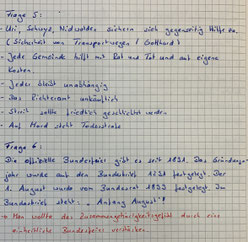 Frage 5:
- Uri, Schwyz, Nidwalden sichern sich gegenseitig Hilfe zu.
( Sicherheit von Transportwegen / Gotthard )
- Jede Gemeinde hilft mit Rat und Tat und auf eigene
Kosten.
- Jeder bleibt unabhängig
- Das Richteramt unkäuflich
- Streit sollte friedlich geschlichtet werden
- Auf Mord steht Todesstrafe
Frage 6:
Die offizielle Bundesfeier gibt es seit 1891. Das Gründungs-
jahr wurde auf den Bundesbrief 1291 festgelegt. Der
1. August wurde vom Bundesrat 1899 festgelegt. Im
Bundesbrief steht: "Anfang August".
→ Man wollte das Zusammengehörigkeitsgefühl durch eine
einheitliche Bundesfeier verstärken